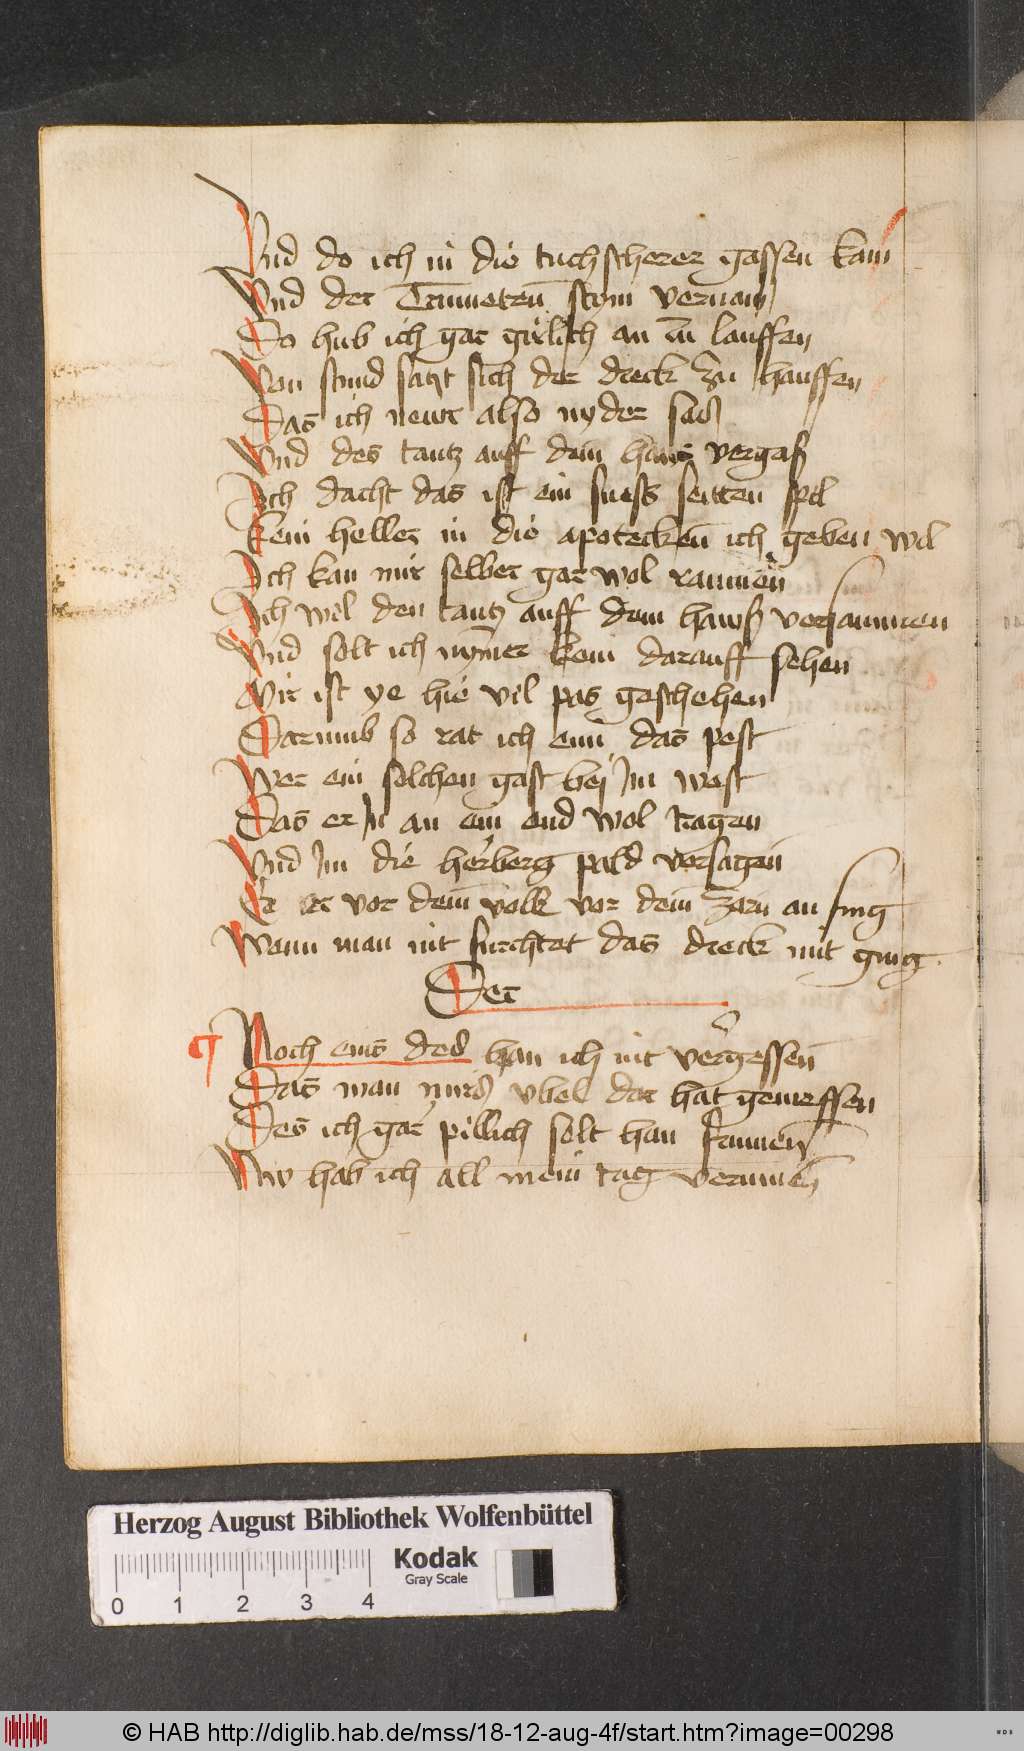 Vnd do ich in die tuchscherer gassen kam
Vnd der Trumeten stym vernam
Do hub ich gar girlich an zu lauffen
Von stund satzt sich der dreck zu hauffen
Das ich newr also nyder sas
Vnd des tantz auff dem haus vergaß
Ich dacht das ist ein suess seitten spil
kein heller in die apotecken ich geben wil
Ich kan mir selber gar wol raumen
Ich wil den tantz auff dem hawß versaumen
Vnd solt ich nymer kein darauff sehen
Mir ist ye hie vil pas geschehen
Darumb so rat ich eim das pest
Wer ein solchen gast bej Im west
Das er In an eim end wol tragen
Vnd Im die herberg pald versagen
Ee er vor dem volk vor dem zorn an fing
Wann man nit furchtet das dreck mit ging
Der
Noch eins des kan ich nit vergessen
Das man mirs vbel dar hat gemessen
Des ich gar pillich solt han
Nw hab ich all mein tag vernumen
Herzog August Bibliothek Wolfenbüttel
Kodak
Gray Scale
0 1 2 3 4
© HAB http://diglib.hab.de/mss/18-12-aug-4f/start.htm?image=00298